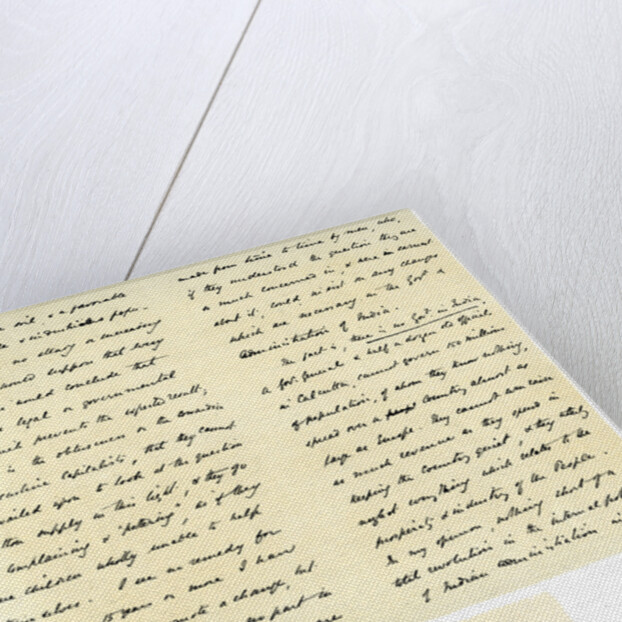 soil, & a favorable
& industrious popn.
no energy or unceasing
would suppose that every
would conclude that
legal or governmental
which prevents the expected result,
is the obtuseness or the
Capitalists, that they cannot
upon to look at the question
supply in this light, & they go
complaining & "petering", as if they
children wholly unable to help
I see no remedy for
15 years or more I have
a change, but
part in
made from time to time by men, who,
if they understood the question they are
so much concerned in, & were in earnest
about it, could insist on any changes
which are necessary in the Govt. &
Administration of India.
In fact is, there is no Govt. in India,
A Govr. General, & half a dozen old officials
in Calcutta, cannot govern 150 millions
of population, of whom they know nothing,
spread over a Country almost as
large as Europe. They cannot even raise
as much revenue as they spend in
keeping the Country quiet, & they utterly
neglect everything which relates to the
prosperity & industry of the People.
In my opinion, nothing short of a
total revolution in the internal
of Indian administration